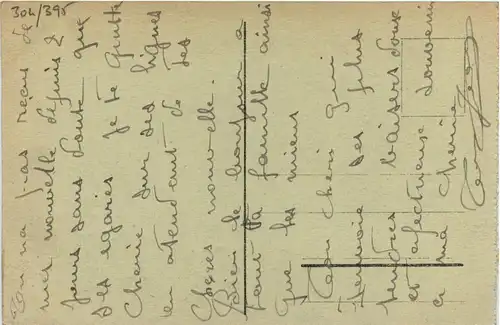 304/395
Tu n'a pas reçus de
mes nouvelle depuis 2
jours sans doute que
des égares je te quitte
Cherie sur ses lignes
en atendant de tes
Chères nouvelle.
Bien le bonjour a
tout ta famille ainsi
que les miens
Ton cheri qui
t'envoie ses plus
tendres baisers doux
et afectueux souvenir
a ma Cherie